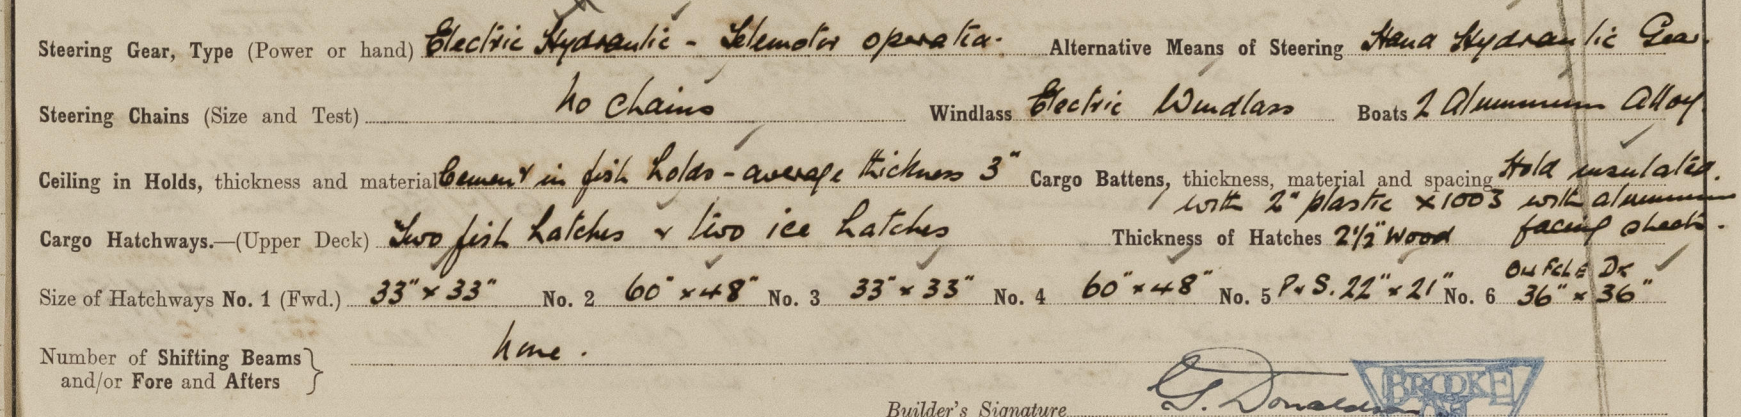 Steering Gear, Type (Power or hand) Electric Hydraulic - Telemotor operated. Alternative Means of Steering Hand Hydraulic Gear.
Steering Chains (Size and Test) No Chains Windlass Electric Windlass Boats 2 Aluminium Alloy
Ceiling in Holds, thickness and material Cement in fish holds - average thickness 3" Cargo Battens, thickness, material and spacing Hold insulated.
with 2" plastic x1003 with aluminium
Cargo Hatchways.—(Upper Deck) Two fish hatches & two ice hatches Thickness of Hatches 2½" Wood facing sheets.
Size of Hatchways No. 1 (Fwd.) 33" x 33" No. 2 60" x 48" No. 3 33" x 33" No. 4 60" x 48" No. 5 P & S. 22" x 21" No. 6 On Fcle Dk 36" x 36"
Number of Shifting Beams and/or Fore and Afters } None.
Builder's Signature G. Donaldson
BROOKE